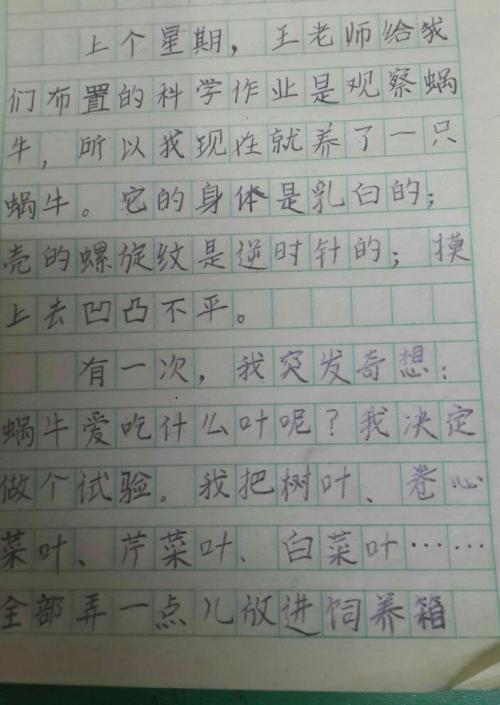 上个星期，王老师给我
们布置的科学作业是观察蜗
牛，所以我现在就养了一只
蜗牛。它的身体是乳白的；
壳的螺旋纹是逆时针的；摸
上去凹凸不平。
有一次，我突发奇想：
蜗牛爱吃什么叶呢？我决定
做个试验。我把树叶、卷心
菜叶、芹菜叶、白菜叶……
全部弄一点儿放进饲养箱